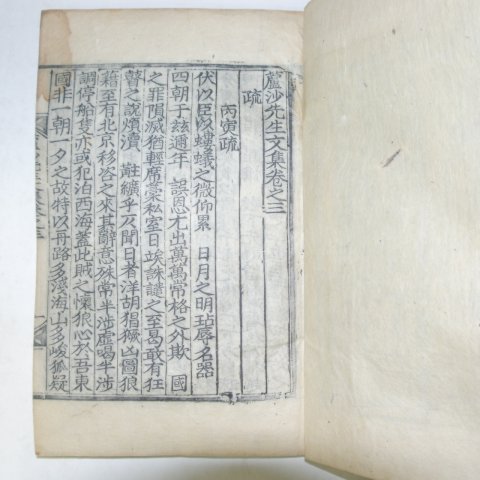 蘆沙先生文集卷之三
疏
丙寅疏
伏以臣以螻蟻之微仰累 日月之明玷辱名器
四朝于玆邇年 認恩尤出萬萬常格之外欺 國
之罪隕滅猶輕席藁私室日竢誅譴之至曷敢有狂
瞽之說煩瀆 黈纊乎仄聞日者洋胡猖獗凶圖狼
藉至有北京移咨之來其辭意殊常半涉虛喝半涉
調停船隻亦或犯泊西海蓋此賊之懷狼心於吾東
國非一朝一夕之故特以再路多海山多峻狐疑